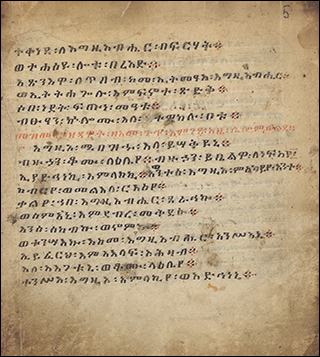 5
ተቀነዩ፡ ለእግዚአብሔር፡ በፍርሃት።
ወተሐሰዩ፡ ሎቱ፡ በረአድ።
አጽንእዋ፡ ለጥበብ፡ ከመ፡ ኢይትመዓዕ፡ እግዚአብሔር
ወኢትትሐጐሉ፡ እምፍኖተ፡ ጽድቅ
ሶበ፡ ነደት፡ ፍጡነ፡ መዓቱ
ብፁዓን፡ ኵሎሙ፡ እለ፡ ተወከሉ፡ ቦቱ።
መዝሙር፡ ዘዳዊት፡ በአመ፡ ጐየ፡ እምገጸ፡
እግዚኦ፡ ሚ፡ በዝኁ፡ እለ፡ ይሣቅዩኒ
ብዙኃን፡ ቆሙ፡ ላዕሌየ። ብዙኃን፡ ይቤልዋ፡ ለነፍስየ
ኢያድኅነኪ፡ አምላክኪ። አንተሰ፡ እግዚኦ፡
ክብርየ፡ ወመልእለ፡ ርእስየ
ቃልየ፡ ኀበ፡ እግዚአብሔር፡ ጸራኅኩ
ወሰምአኒ፡ እምደብረ፡ መቅደሱ።
አንሰ፡ ሰከብኩ፡ ወኖምኩ።
ወተንሣእኩ፡ እስመ፡ እግዚአብሔር፡ አንሥአኒ
ኢይፈርህ፡ እምአእላፍ፡ አሕዛብ
እለ፡ አገቱኒ፡ ወቆሙ፡ ላዕሌየ
ተንሥእ፡ እግዚኦ፡ አምላኪየ፡ ወአድኅነኒ